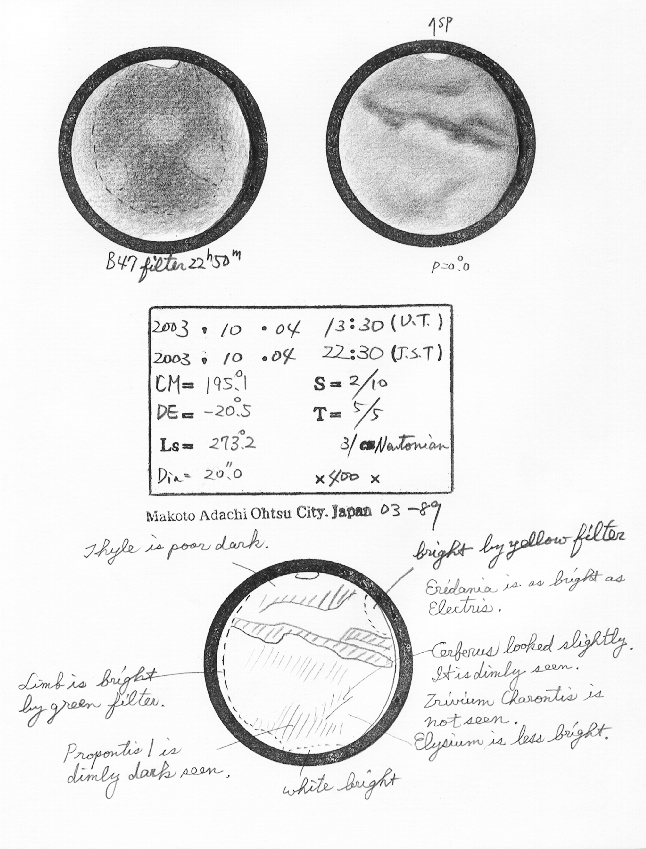 ↑SP
B47 filter 22ʰ50ᵐ
P=0.°0
2003 . 10 . 04 13:30 (U.T.)
2003 . 10 . 04 22:30 (J.S.T)
CM= 195.°1 S= 2/10
DE= -20.°5 T= 5/5
Ls= 273.°2 31 cm Newtonian
Dia= 20."0 ×400 ×
Makoto Adachi Ohtsu City. Japan 03-89
Thyle is poor dark.
bright by yellow filter
Eredania is as bright as
Electris.
Cerberus looked slightly.
It is dimly seen.
Trivium Charontis is
not seen.
Elysium is less bright.
Limb is bright
by green filter.
Propontis I is
dimly dark seen.
white bright